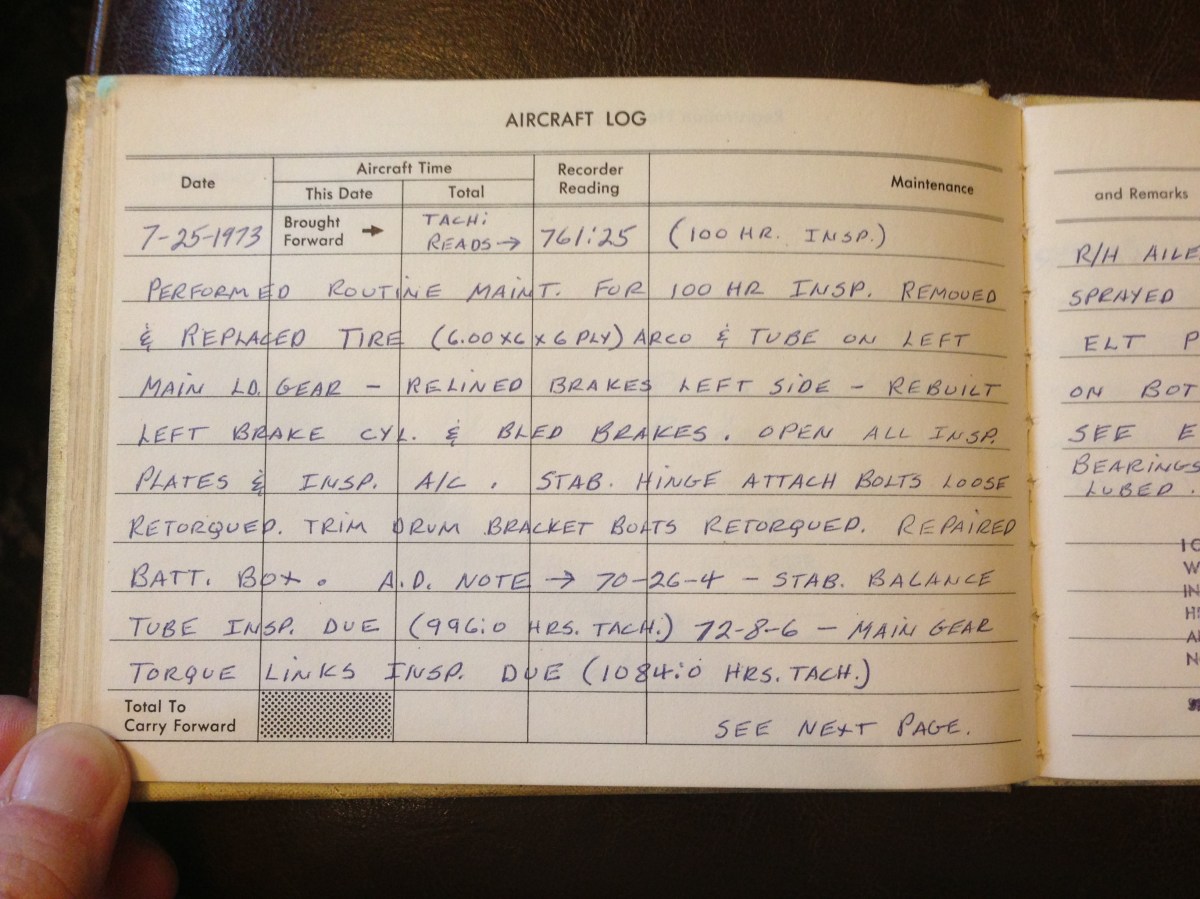 AIRCRAFT LOG
Date
Aircraft Time
This Date
Total
Recorder
Reading
Maintenance
7-25-1973
Brought
Forward →
TACH:
READS →
761:25
(100 HR. INSP.)
PERFORMED ROUTINE MAINT. FUR 100 HR INSP. REMOVED
& REPLACED TIRE (6.00 X 6 X 6 PLY) ARCO & TUBE ON LEFT
MAIN LD. GEAR - RELINED BRAKES LEFT SIDE - REBUILT
LEFT BRAKE CYL. & BLED BRAKES. OPEN ALL INSP.
PLATES & INSP. A/C. STAB. HINGE ATTACH BOLTS LOOSE
RETORQUED. TRIM DRUM BRACKET BOLTS RETORQUED. REPAIRED
BATT. BOX. A.D. NOTE → 70-26-4 - STAB. BALANCE
TUBE INSP. DUE (996:0 HRS. TACH.) 72-8-6 - MAIN GEAR
TORQUE LINKS INSP. DUE (1084:0 HRS. TACH.)
Total To
Carry Forward
SEE NEXT PAGE.
and Remarks
R/H AILE
SPRAYED
ELT P
ON BOT
SEE E
BEARINGS
LUBED.
W
IN